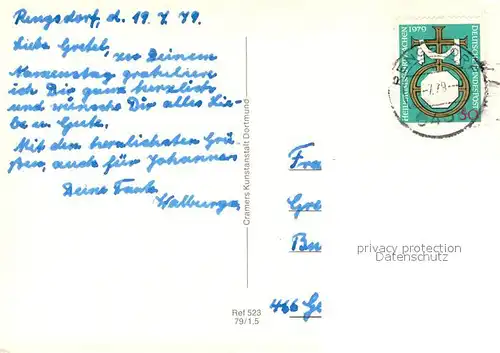 Rengsdorf, d. 19.7.79.
Liebe Gretel,
zu Deinem
Namenstag gratuliere
ich Dir ganz herzlich
und wünsche Dir alles Lie-
be u. Gute.
Mit den herzlichsten Grü-
ßen, auch für Johannes
Deine Tante
Walburga,
Cramers Kunstanstalt Dortmund
Ref 523
79/1,5
1979
DEUTSCHE BUNDESPOST
50
Fra
Gre
Bu
466 Ge
privacy protection
Datenschutz